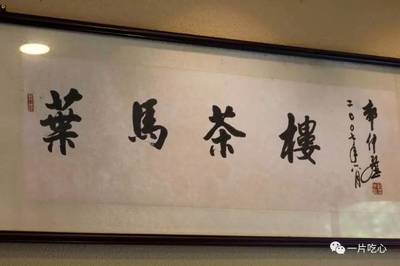 葉馬茶樓
二〇〇七年八月
一片吃心